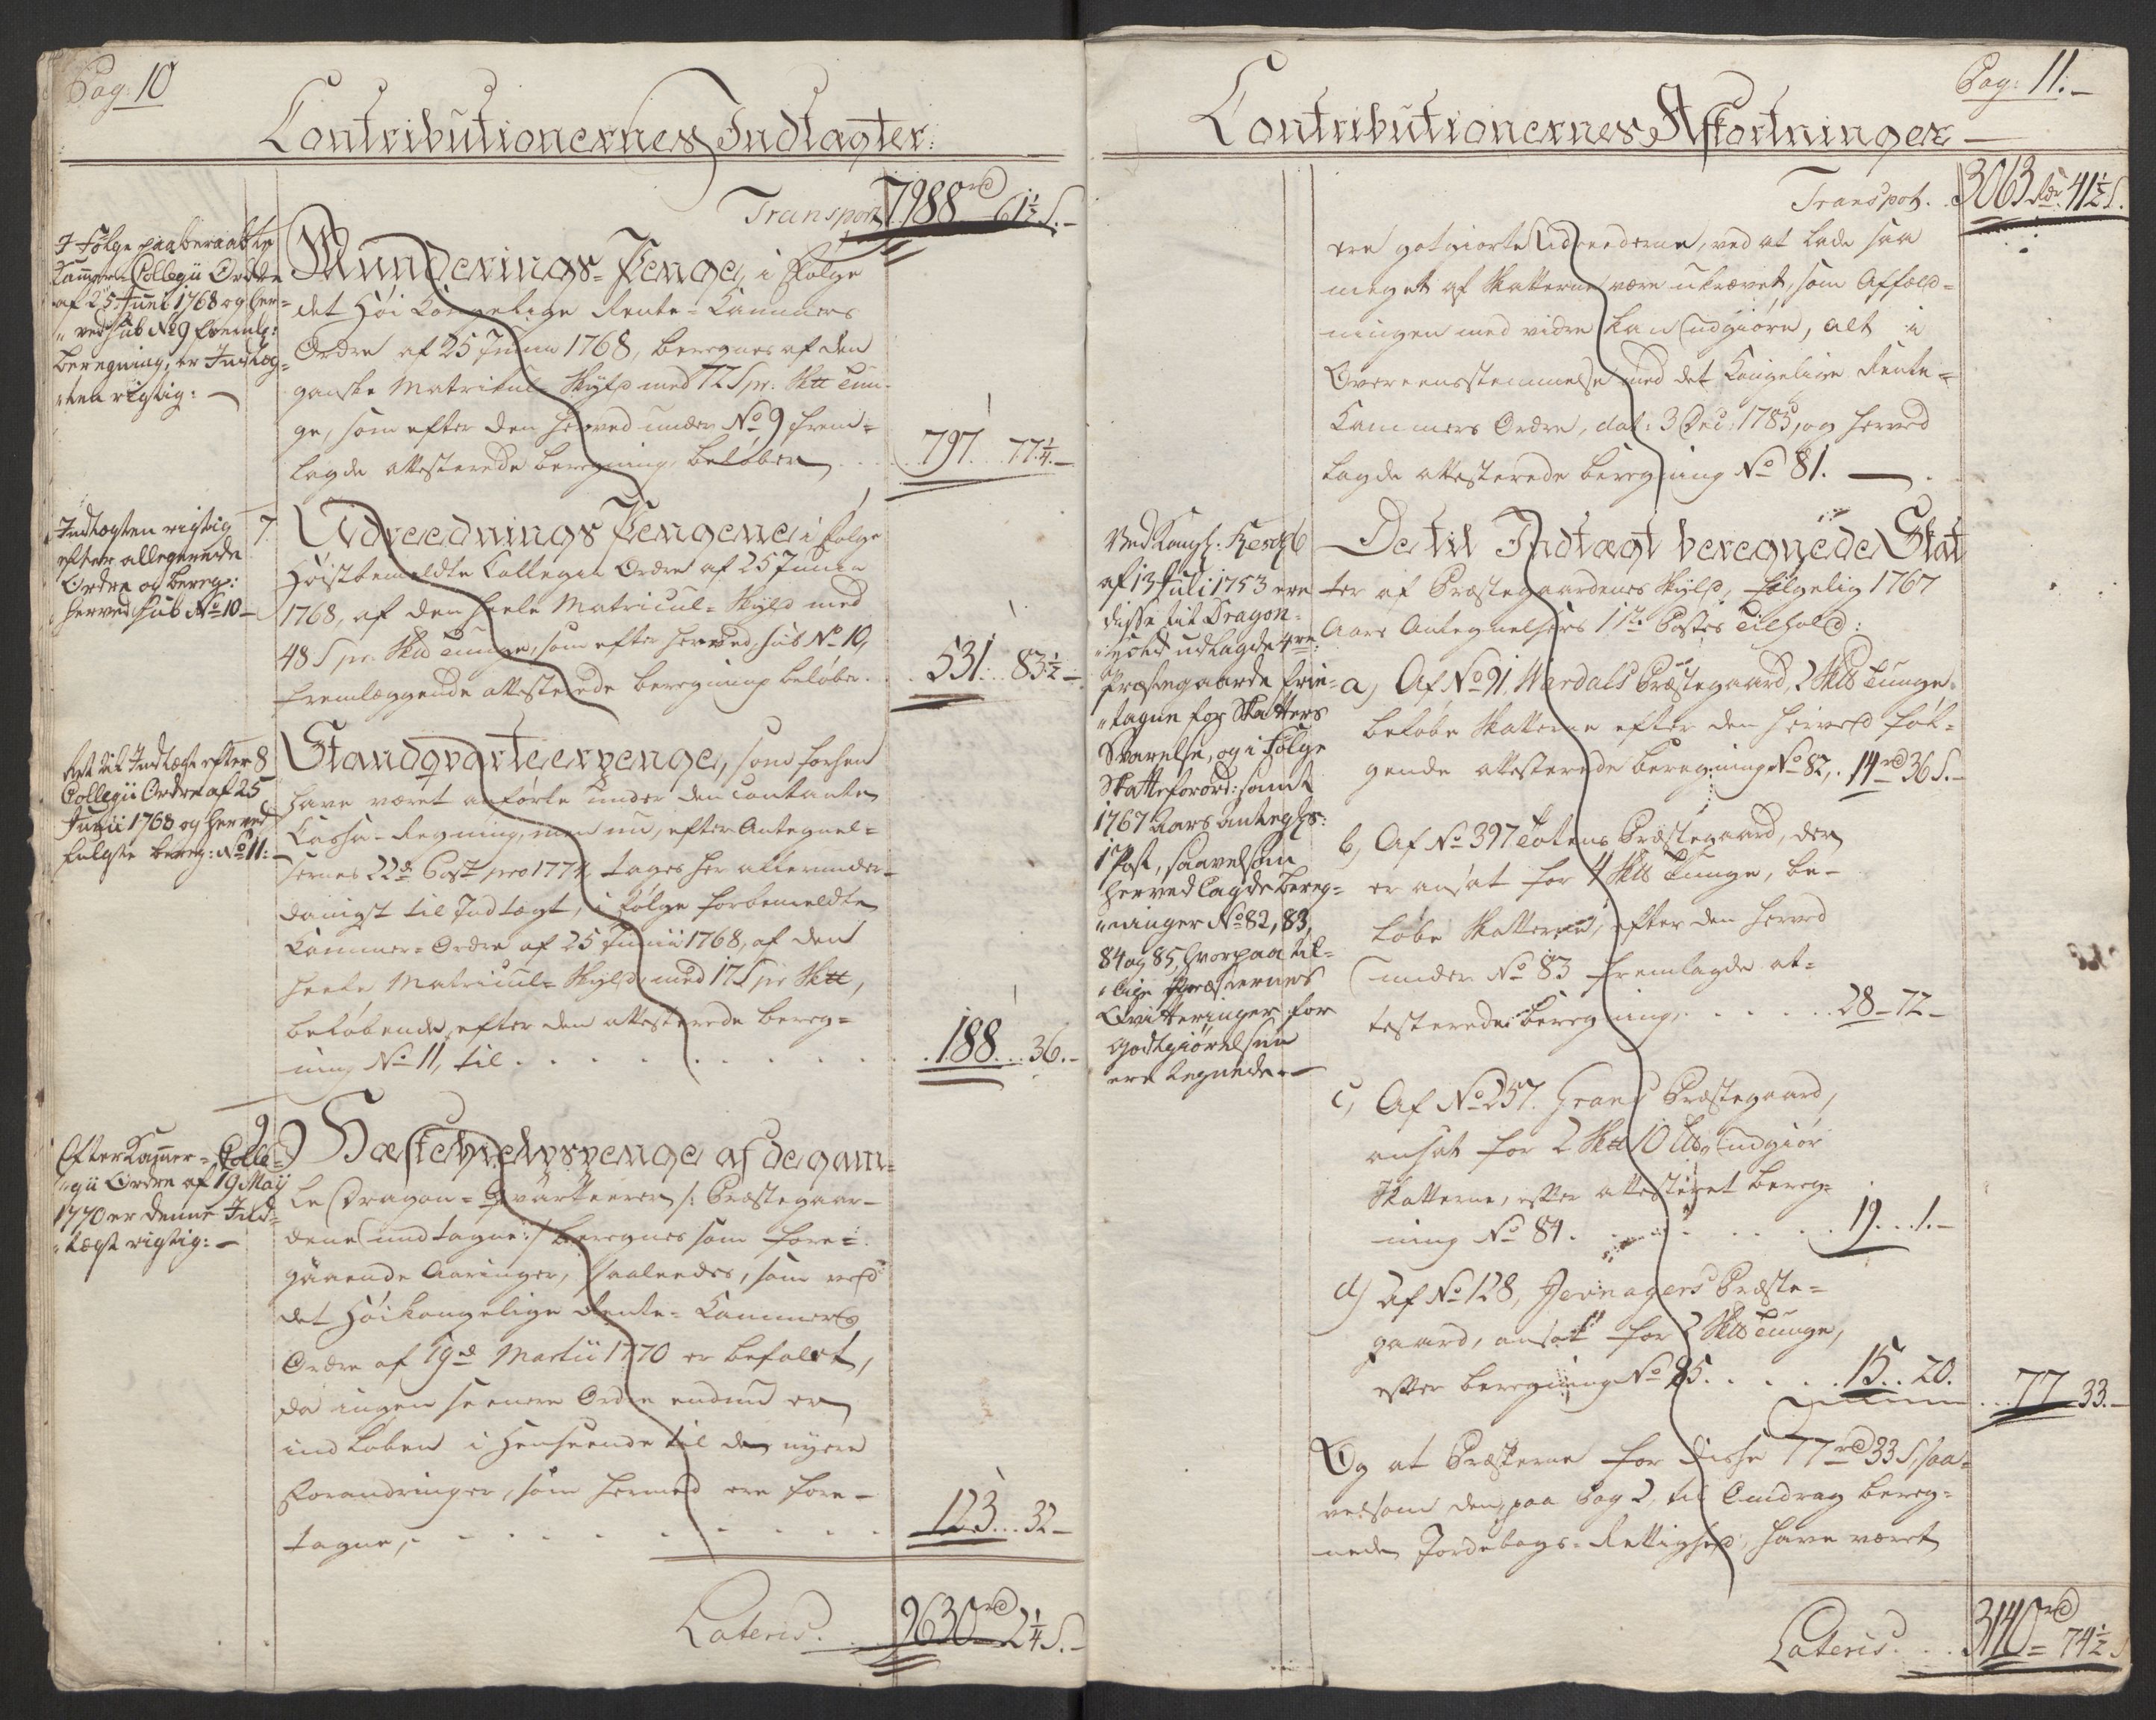 Pag: 10
Contributionernes Indtægter:
Transport 7988 rd 61½ s.
I Følge paaberaabte
Cammer-Collegii Ordre
af 25 Juni 1768 og her-
ved sub No 9 fremlg:
beregning, er Indtæg-
ten rigtig:
Munderings-Penge, i Følge
det Høi Kongelige Rente-Kammers
Ordre af 25 Junii 1768, beregnes af den
ganske Matricul-Skyld med 72 s pr. Sk℔ Tun-
ge, som efter den herved under No 9 frem-
lagde attesterede beregning, beløber . . 797. 77¼.
Indtægten rigtig
efter allegerende
Ordre og bereg:
herved sub No 10
7. Udreednings Pengene i Følge
Høistbemeldte Collegii Ordre af 25 Junii
1768, af den heele Matricul-Skyld med
48 s pr. Sk℔ Tunge, som efter herved sub No 10,
fremlæggende attesterede beregning beløbe . . 531. 83½
Ret til Indtægt efter
Collegii Ordre af 25
Junii 1768 og herved
fulgte bereg: No 11:
8 Standqvarteerpenge, som forhen
have været anførte under den contante
Cassa-Regning, men nu, efter Antegnel-
sernes 22de Post pro 1774, tages her allerunder-
danigst til Indtægt, i Følge forbemeldte
Kammer-Ordre af 25 Junii 1768, af den
heele Matricul-Skyld med 17 s pr Sk℔,
beløbende, efter den attesterede bereg-
ning No 11, til . . . . . . . . 188. 36.
Efter Kammer-Colle-
gii Ordre af 19 May
1770 er denne Ind-
tægt rigtig:
9 Hæstehielpspenge af de gam-
le Dragon-Qvarteerer /: Præstegaar-
dene undtagne :/ beregnes som fore-
gaaende Aaringer, saaleedes, som ved
det Høikongelige Rente-Kammers
Ordre af 19de Martii 1770 er befalet,
da ingen seenere Ordre endnu er
indløben i Henseende til de nyere
Forandringer, som hermed ere fore-
tagne, . . . . . . . . 123. 32
Lateris. . . 9630 rd 2¼ s.
Pag: 11.
Contributionernes Afkortninger
Transport. 3063 rdr 41½ s.
ere godgiorte Udreederne, ved at lade saa
meget af Skatterne være ukrævet, som Affæld-
ningen med vidre kan udgiøre, alt i
Overeensstemmelse med det Kongelige Rente-
Kammers Ordre, dat: 3 Dec: 1785, og herved
lagde attesterede beregning No 81.
Ved Kongl: Rescr
af 13 Juli 1753 ere
disse til Dragon-
Hold udlagde 4re
Præstegaarde frie-
tagne for Skatters
Svarelse, og i Følge
Skatteforord: samt
1767 Aars antegls:
1 Post, saavelsom
herved lagde bereg-
ninger No 82, 83,
84 og 85, hvorpaa til-
lige Præsternes
Qvitteringer for
Godtgiørelsen
ere tegnede.
De til Indtægt beregnede Skat
ter af Præstegaardenes Skyld, følgelig 1767
Aars Antegnelsers 1ste Postes Tilhold:
a) Af No 91, Wardals Præstegaard, 2 Sk℔ Tunge
beløbe Skatterne efter den herved føl-
gende attesterede beregning No 82, . 14 rd 36 s.
b, Af No 397 Totens Præstegaard, der
er ansat for 4 Sk℔ Tunge, be-
løbe Skatterne, efter den herved
under No 83 fremlagde at-
testerede beregning, . . . . . 28 - 72 -
c, Af No 257. Grans Præstegaard,
ansat for 2 Sk℔ 10 ℔, udgiør
Skatterne, efter attesteret bereg-
ning No 84. . . . . . 19 . . 1.
d) Af No 128, Jevnagers Præste-
gaard, ansat for 2 Sk℔ Tunge,
efter beregning No 85. . . . . 15. . 20.
. . . 77 33.
Og at Præsterne for disse 77 rd 33 s, saa-
velsom den, paa Pag 2, til Omdrag bereg-
nede Jordebogs-Rettighed, have været
Lateris. . . 3140 rd 74½ s